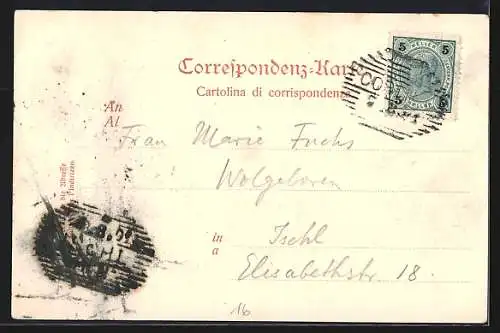 Correspondenz-Karte
Cartolina di corrispondenza
5 HELLER 5
An
Al
Frau Marie Fuchs
Wolgeboren
in
a
Ischl
Elisabethstr 18.
16